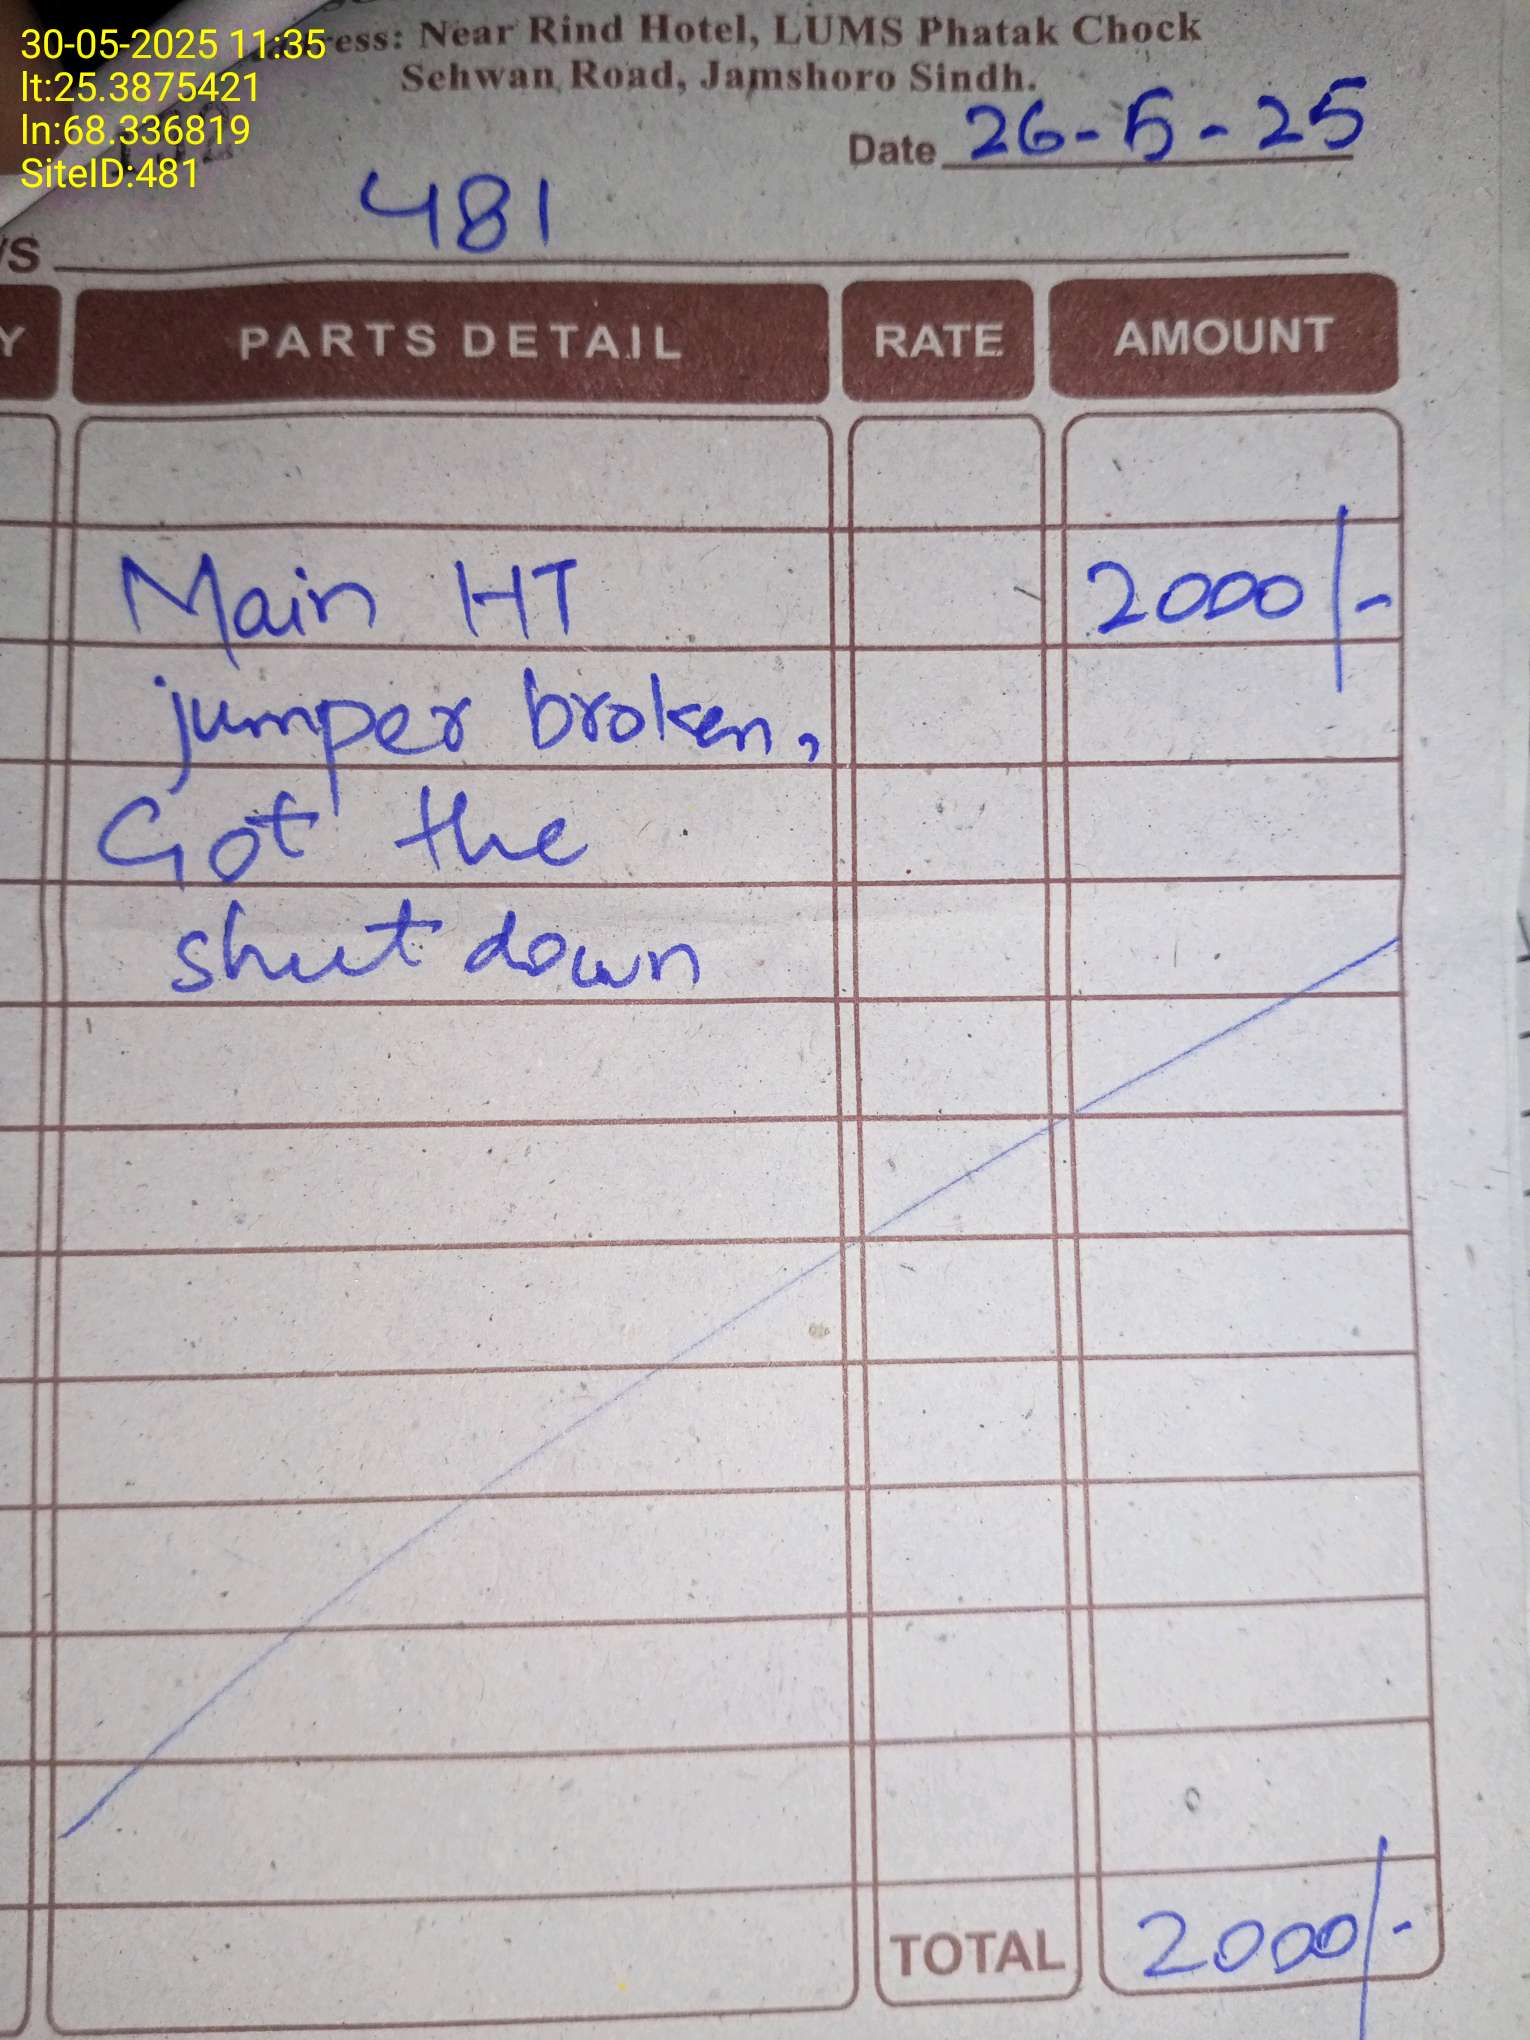 30-05-2025 11:35
lt:25.3875421
ln:68.336819
SiteID:481
ess: Near Rind Hotel, LUMS Phatak Chock
Sehwan Road, Jamshoro Sindh.
Date 26-5-25
/S 481
Y PARTS DETAIL RATE AMOUNT
Main HT 2000/-
jumper broken,
Got the
shut down
TOTAL 2000/-